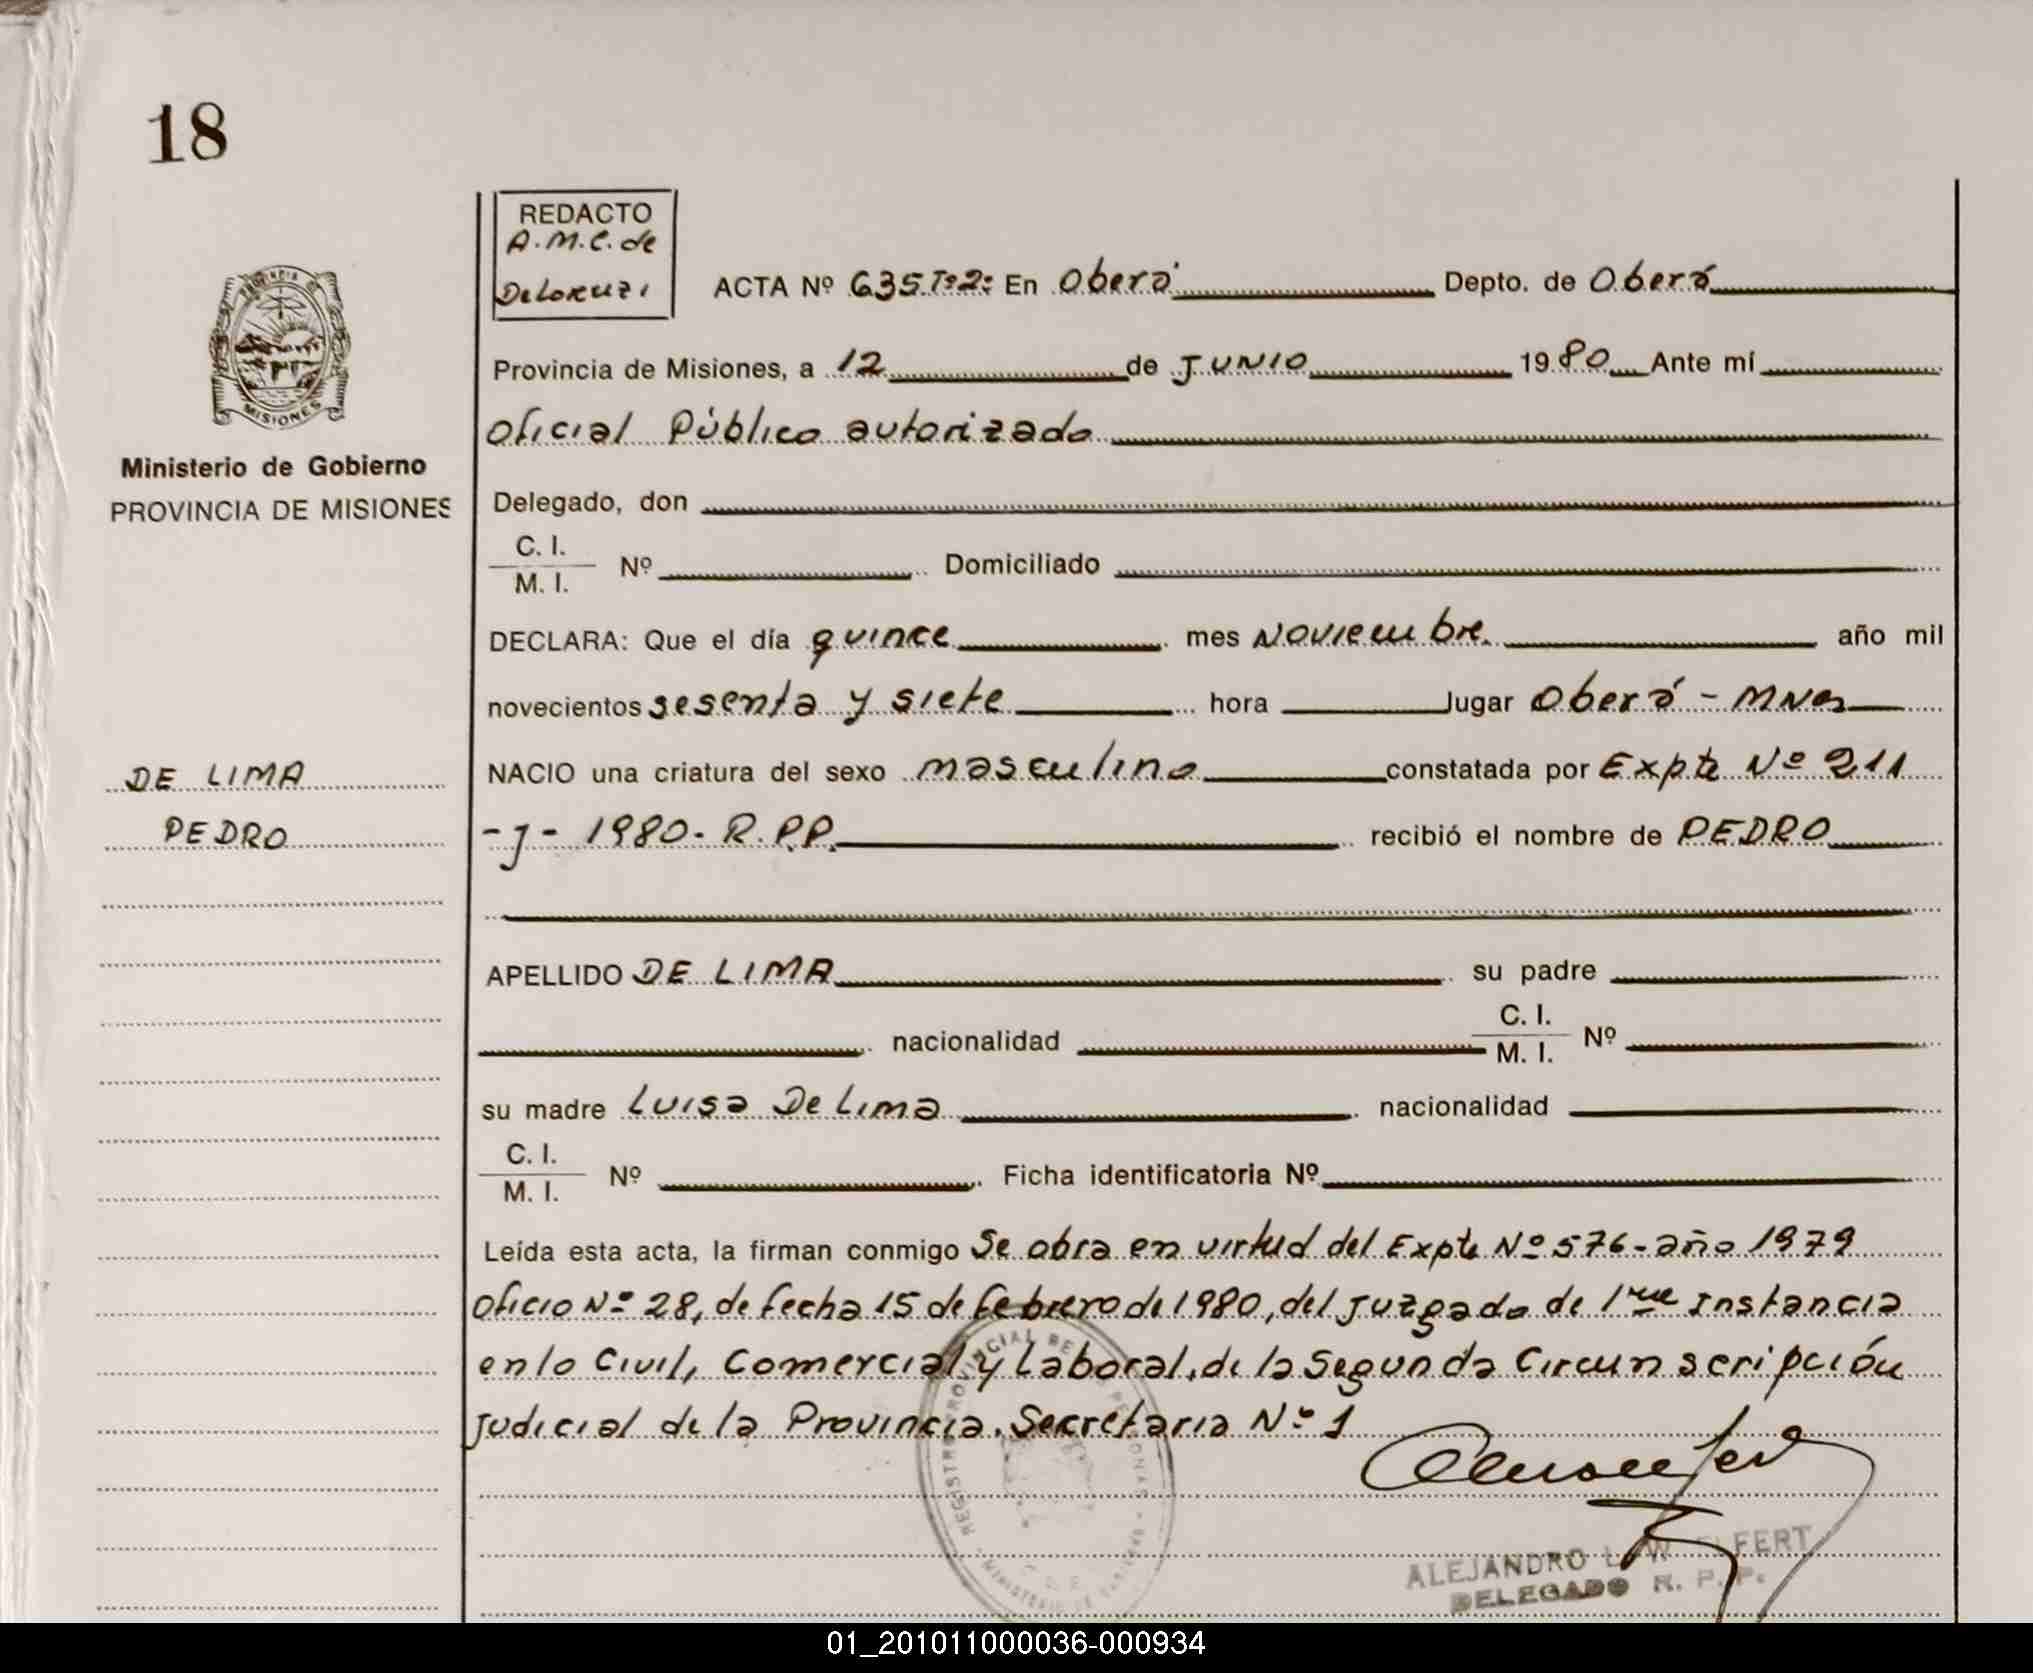 18
REDACTO
A.M.C. de
DeLorenzi
PROVINCIA DE
MISIONES
ACTA Nº 635 Tº2: En Oberá Depto. de Oberá
Provincia de Misiones, a 12 de JUNIO 1980 Ante mí
Oficial Público autorizado
Ministerio de Gobierno
PROVINCIA DE MISIONES
Delegado, don
C. I.
M. I. Nº Domiciliado
DECLARA: Que el día quince mes Noviembre año mil
novecientos sesenta y siete hora lugar Oberá - MNes
DE LIMA
PEDRO
NACIO una criatura del sexo masculino constatada por Expte Nº 211
-J- 1980- R.P.P. recibió el nombre de PEDRO
APELLIDO DE LIMA su padre
nacionalidad C. I.
M. I. Nº
su madre Luisa De Lima nacionalidad
C. I.
M. I. Nº Ficha identificatoria Nº
Leída esta acta, la firman conmigo Se obra en virtud del Expte Nº 576- año 1979
Oficio Nº 28, de fecha 15 de febrero de 1980, del Juzgado de 1ra Instancia
en lo Civil, Comercial y Laboral, de la Segunda Circunscripción
Judicial de la Provincia. Secretaria Nº 1
ALEJANDRO
DELEGADO R. P. P.
01_201011000036-000934